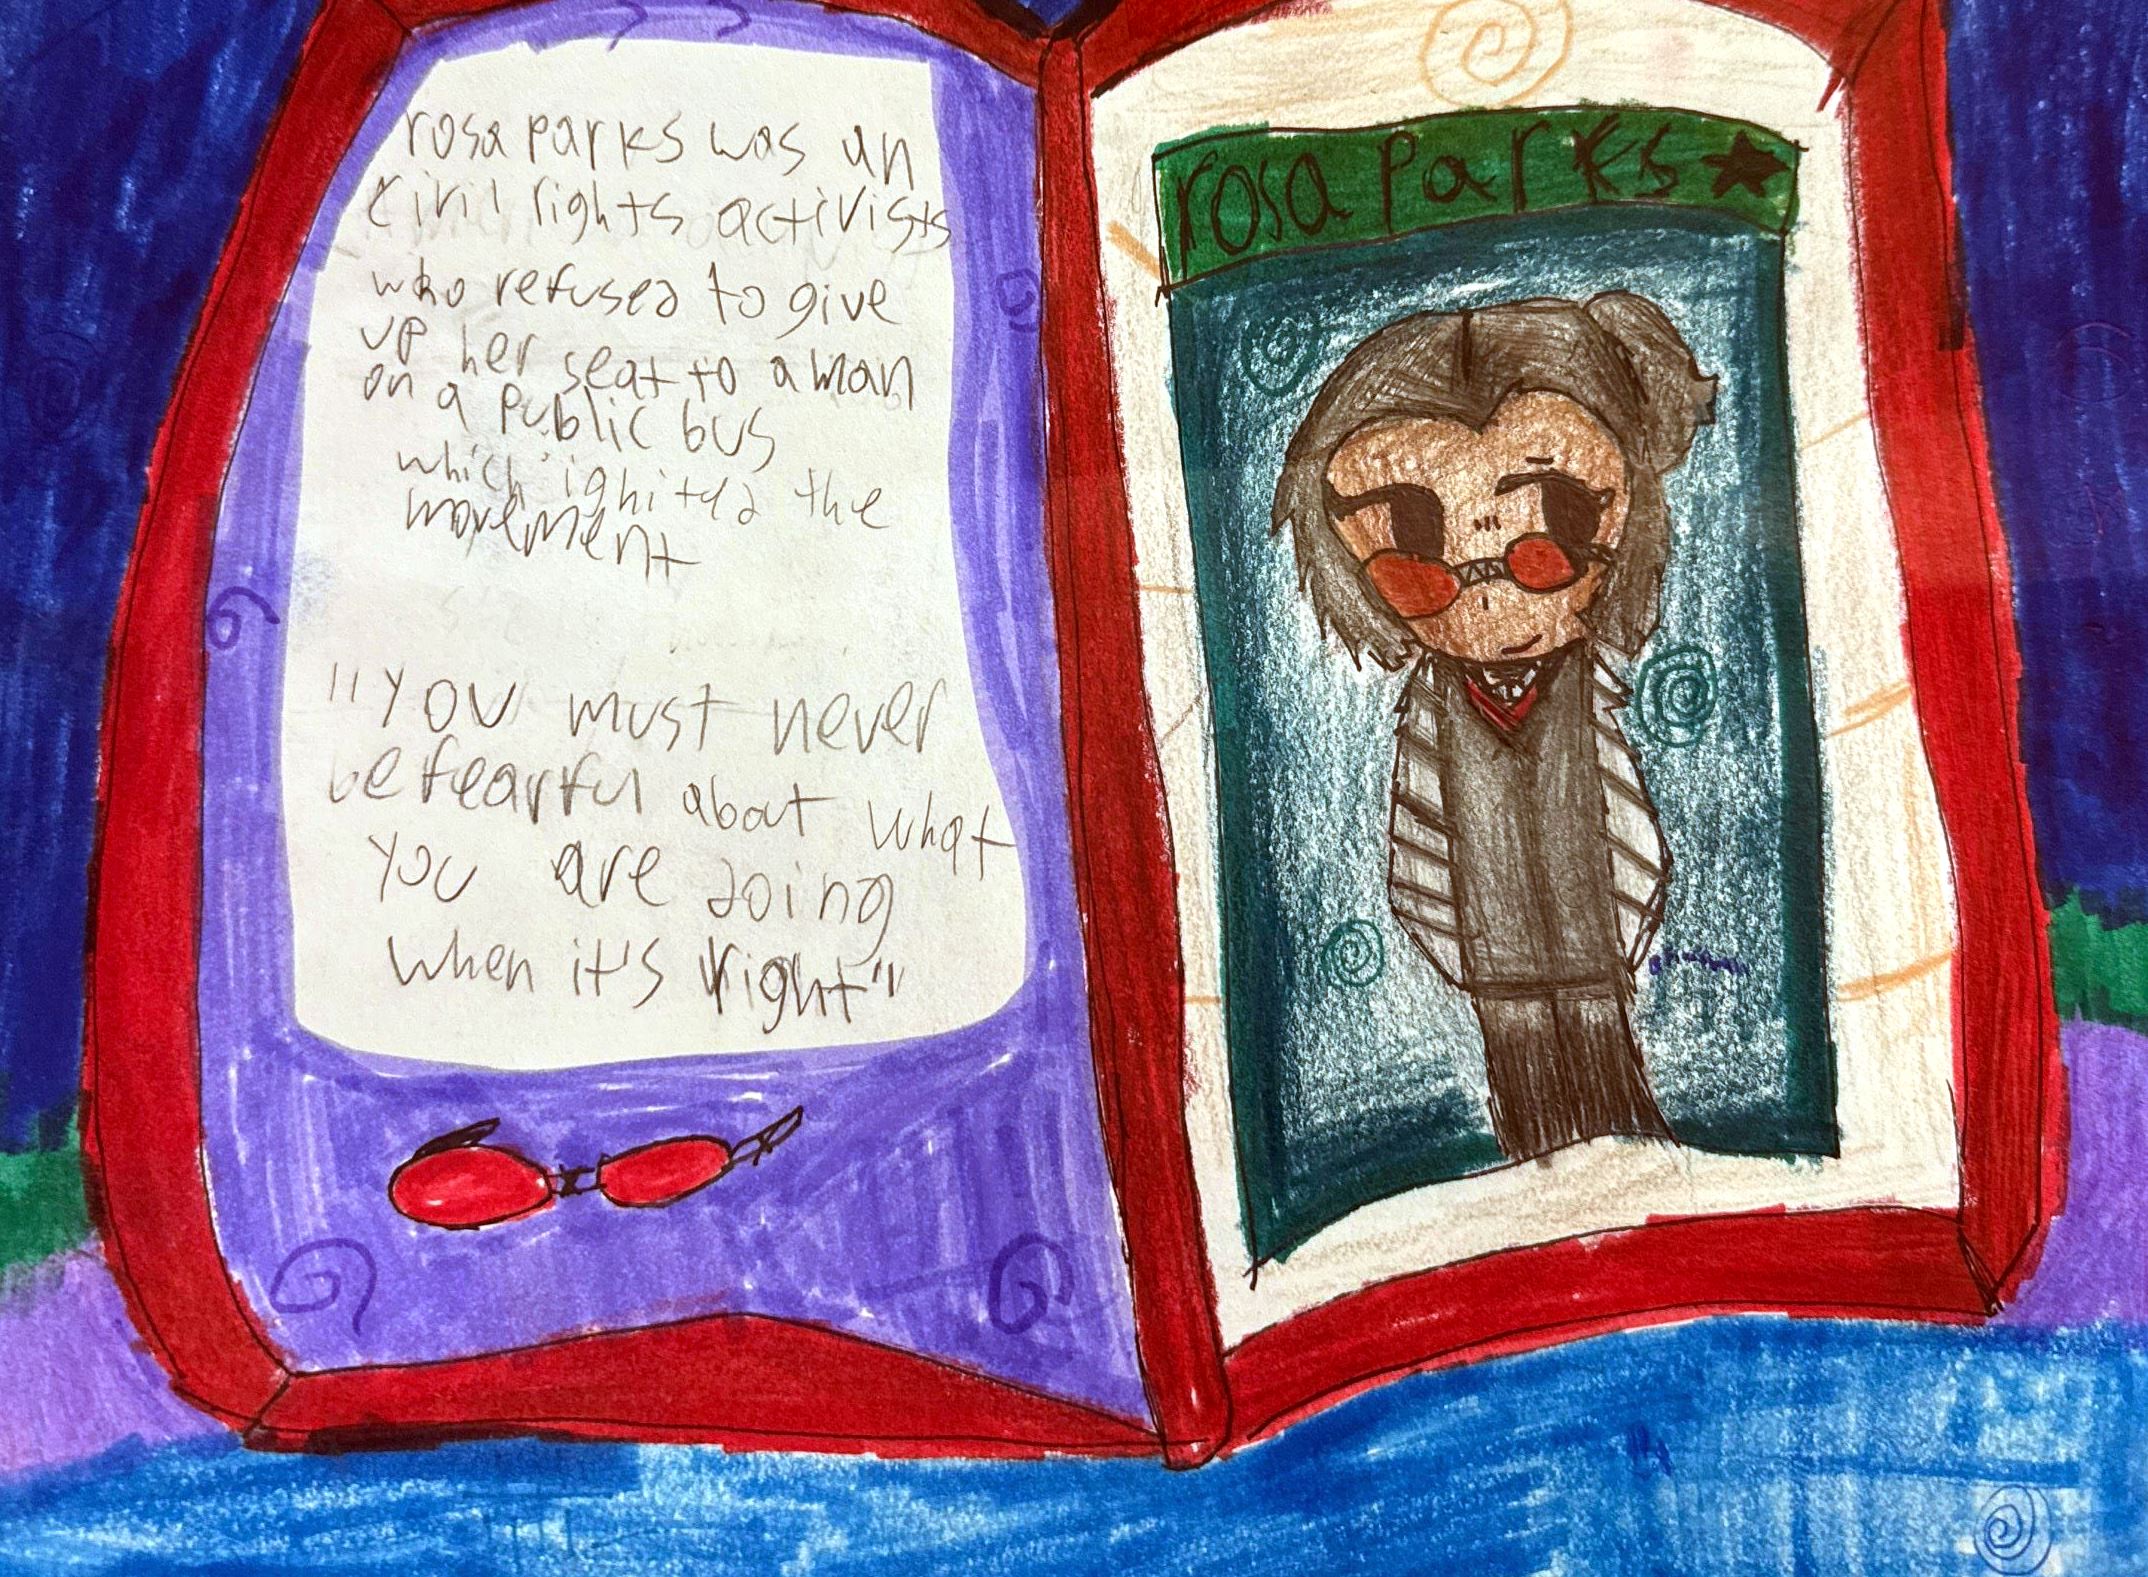 rosa parks was an
civil rights activists
who refused to give
up her seat to a man
on a public bus
which ignited the
movement
"You must never
be fearful about what
you are doing
when it's right"
rosa Parks